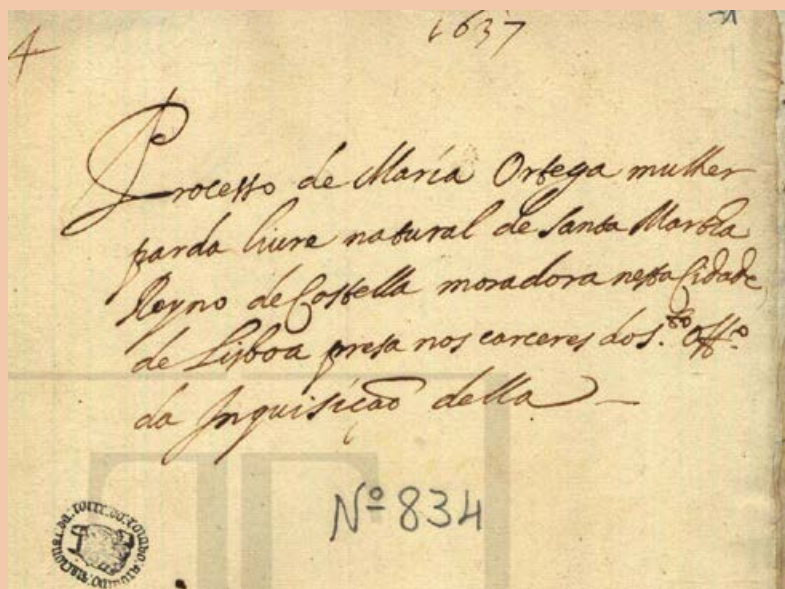 1637
4
Processo de Maria Ortega mulher
parda liure natural de Santa Martha
Reyno de Castella moradora nesta Cidade
de Lisboa presa nos carceres do S.to Off.o
da Inquisicaõ della
Nº 834